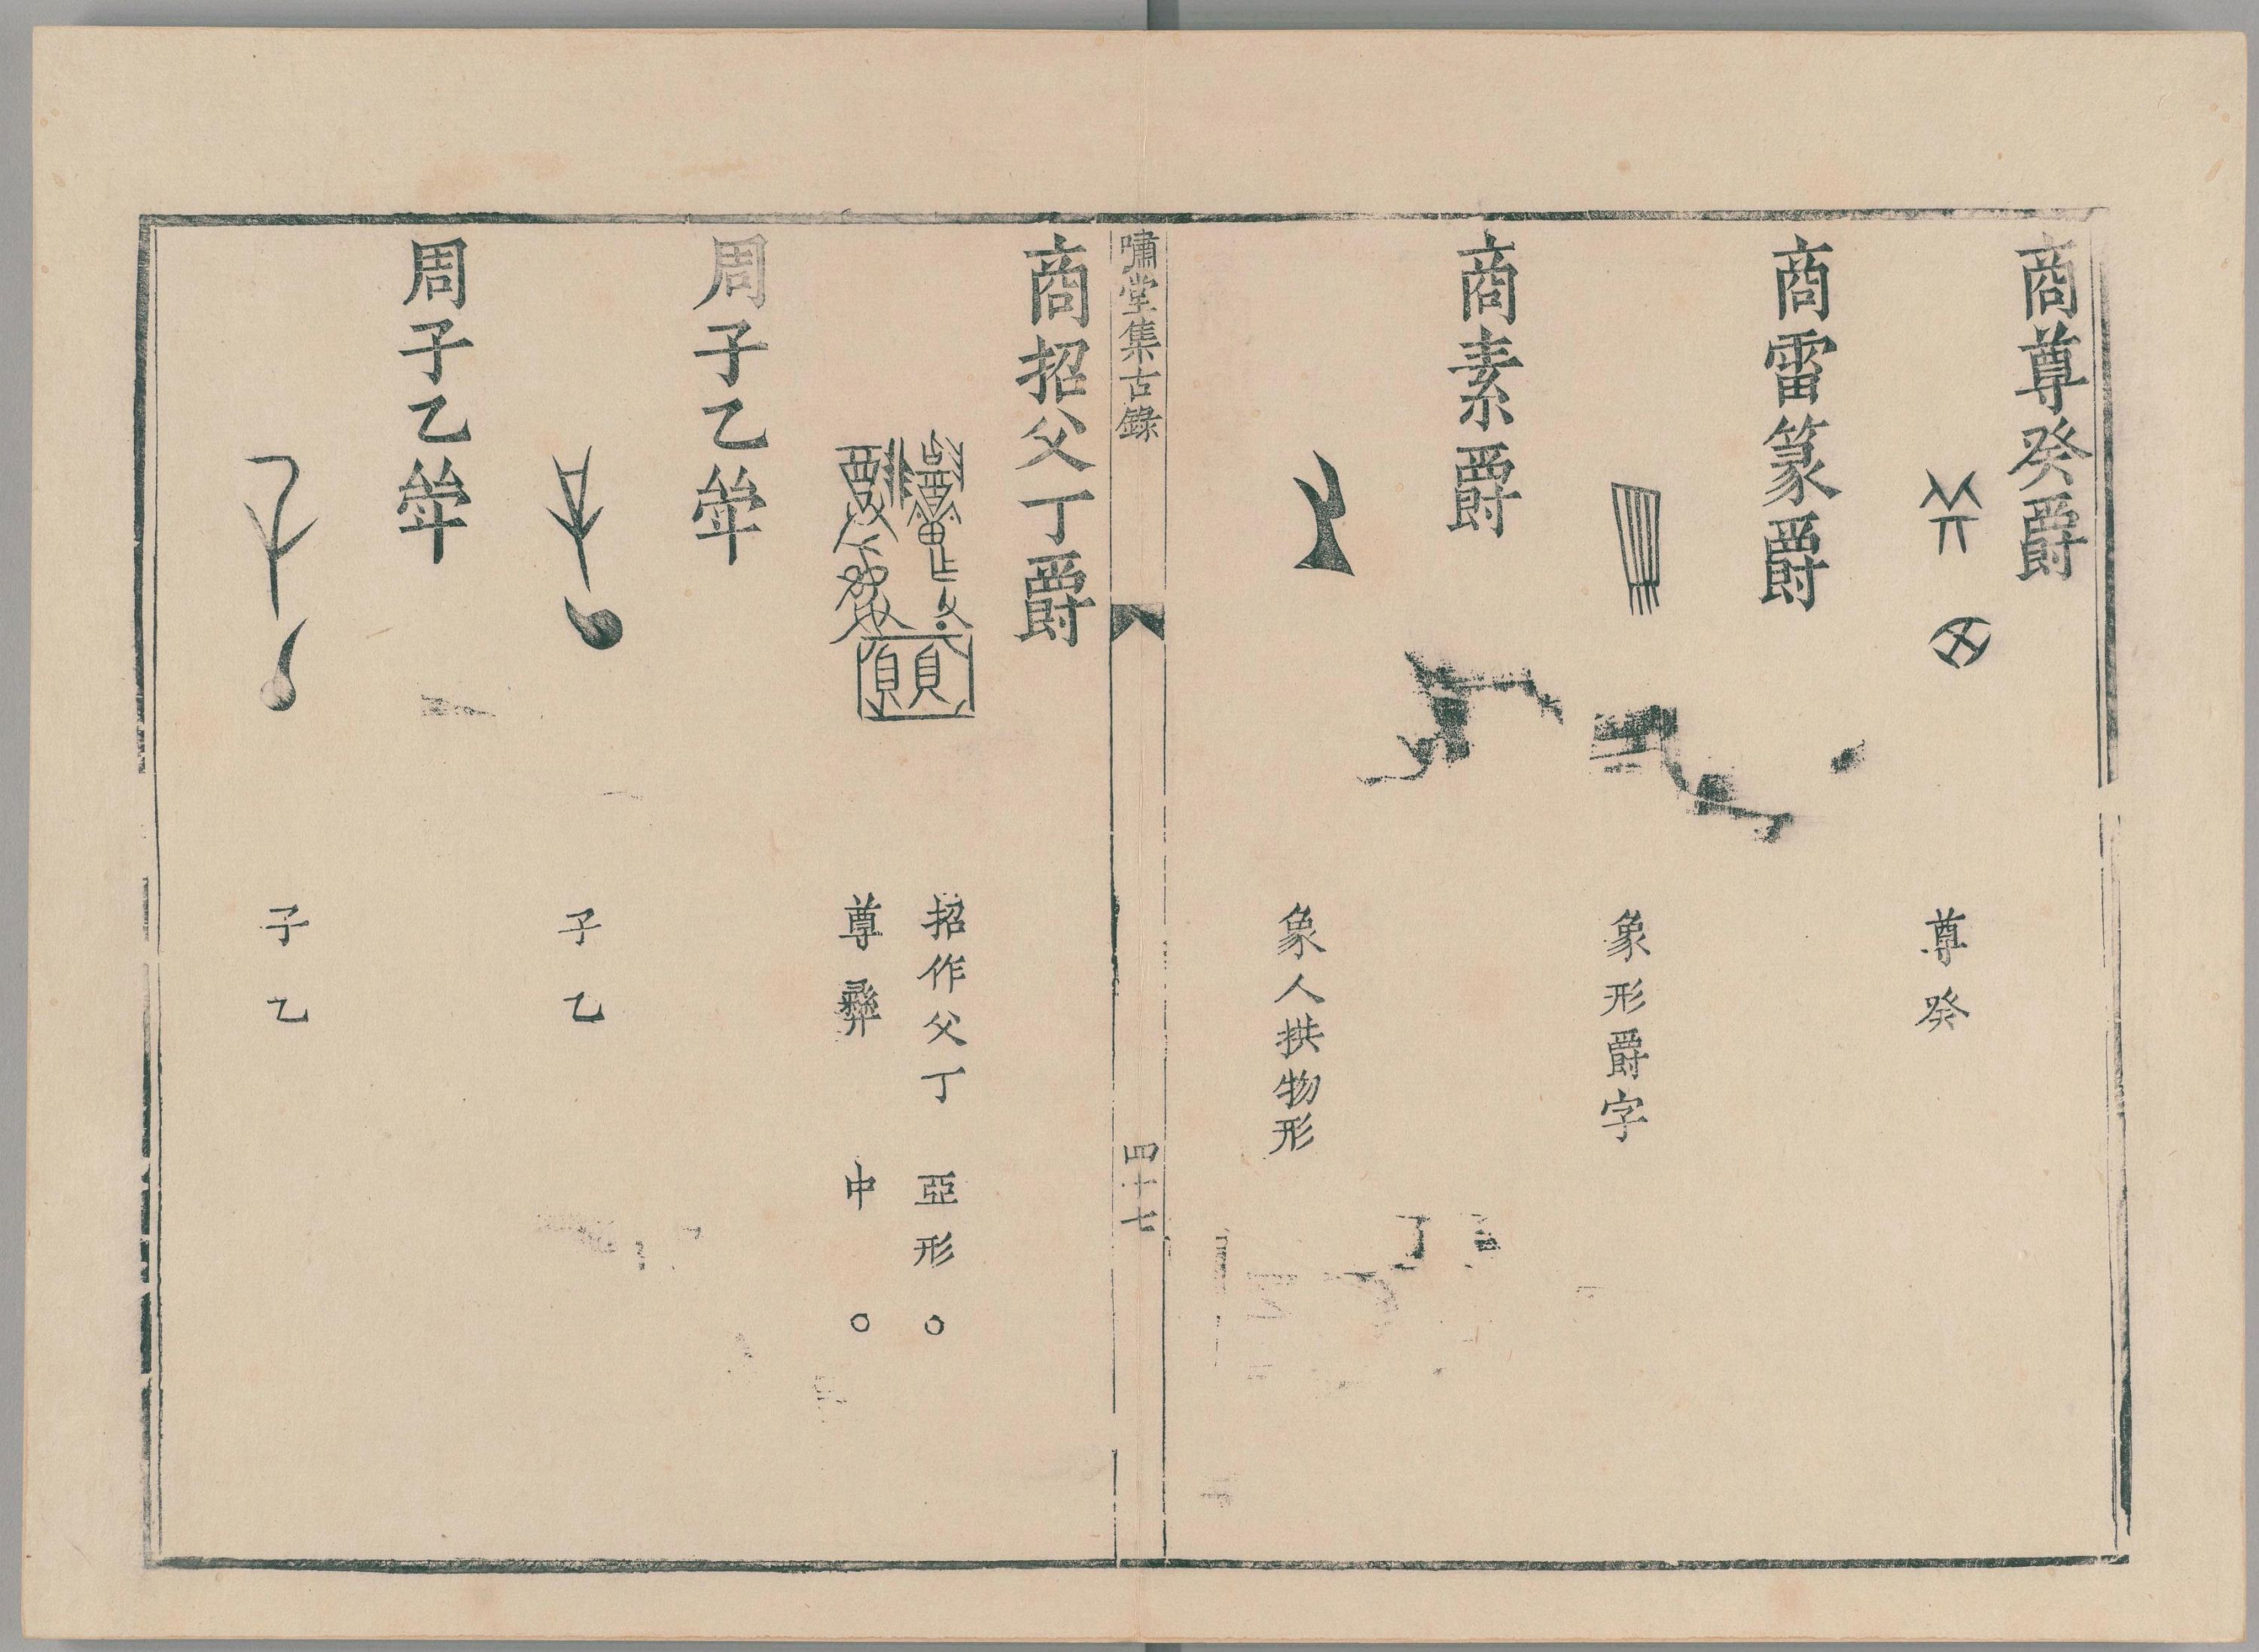 商尊癸爵
尊癸
商雷篆爵
象形爵字
商素爵
象人拱物形
嘯堂集古錄
四十七
商招父丁爵
招作父丁 亞形 ○
尊彝 中 ○
周子乙斝
子乙
周子乙斝
子乙